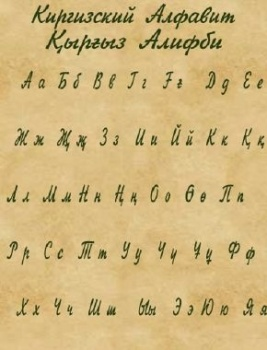 Киргизский Алфавит
Қырғыз Алифби
Аа Бб Вв Гг Ғғ Дд Ее
Жж Җҗ Зз Ии Йй Кк Ққ
Лл Мм Нн Ңң Оо Өө Пп
Рр Сс Тт Уу Үү Ұұ Фф
Хх Чч Шш Ыы Ээ Юю Яя